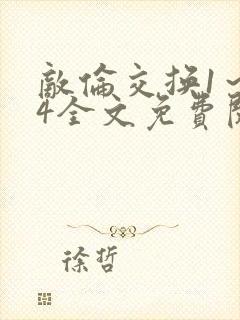 敵倫交换1～
4全文免費閱
徐哲